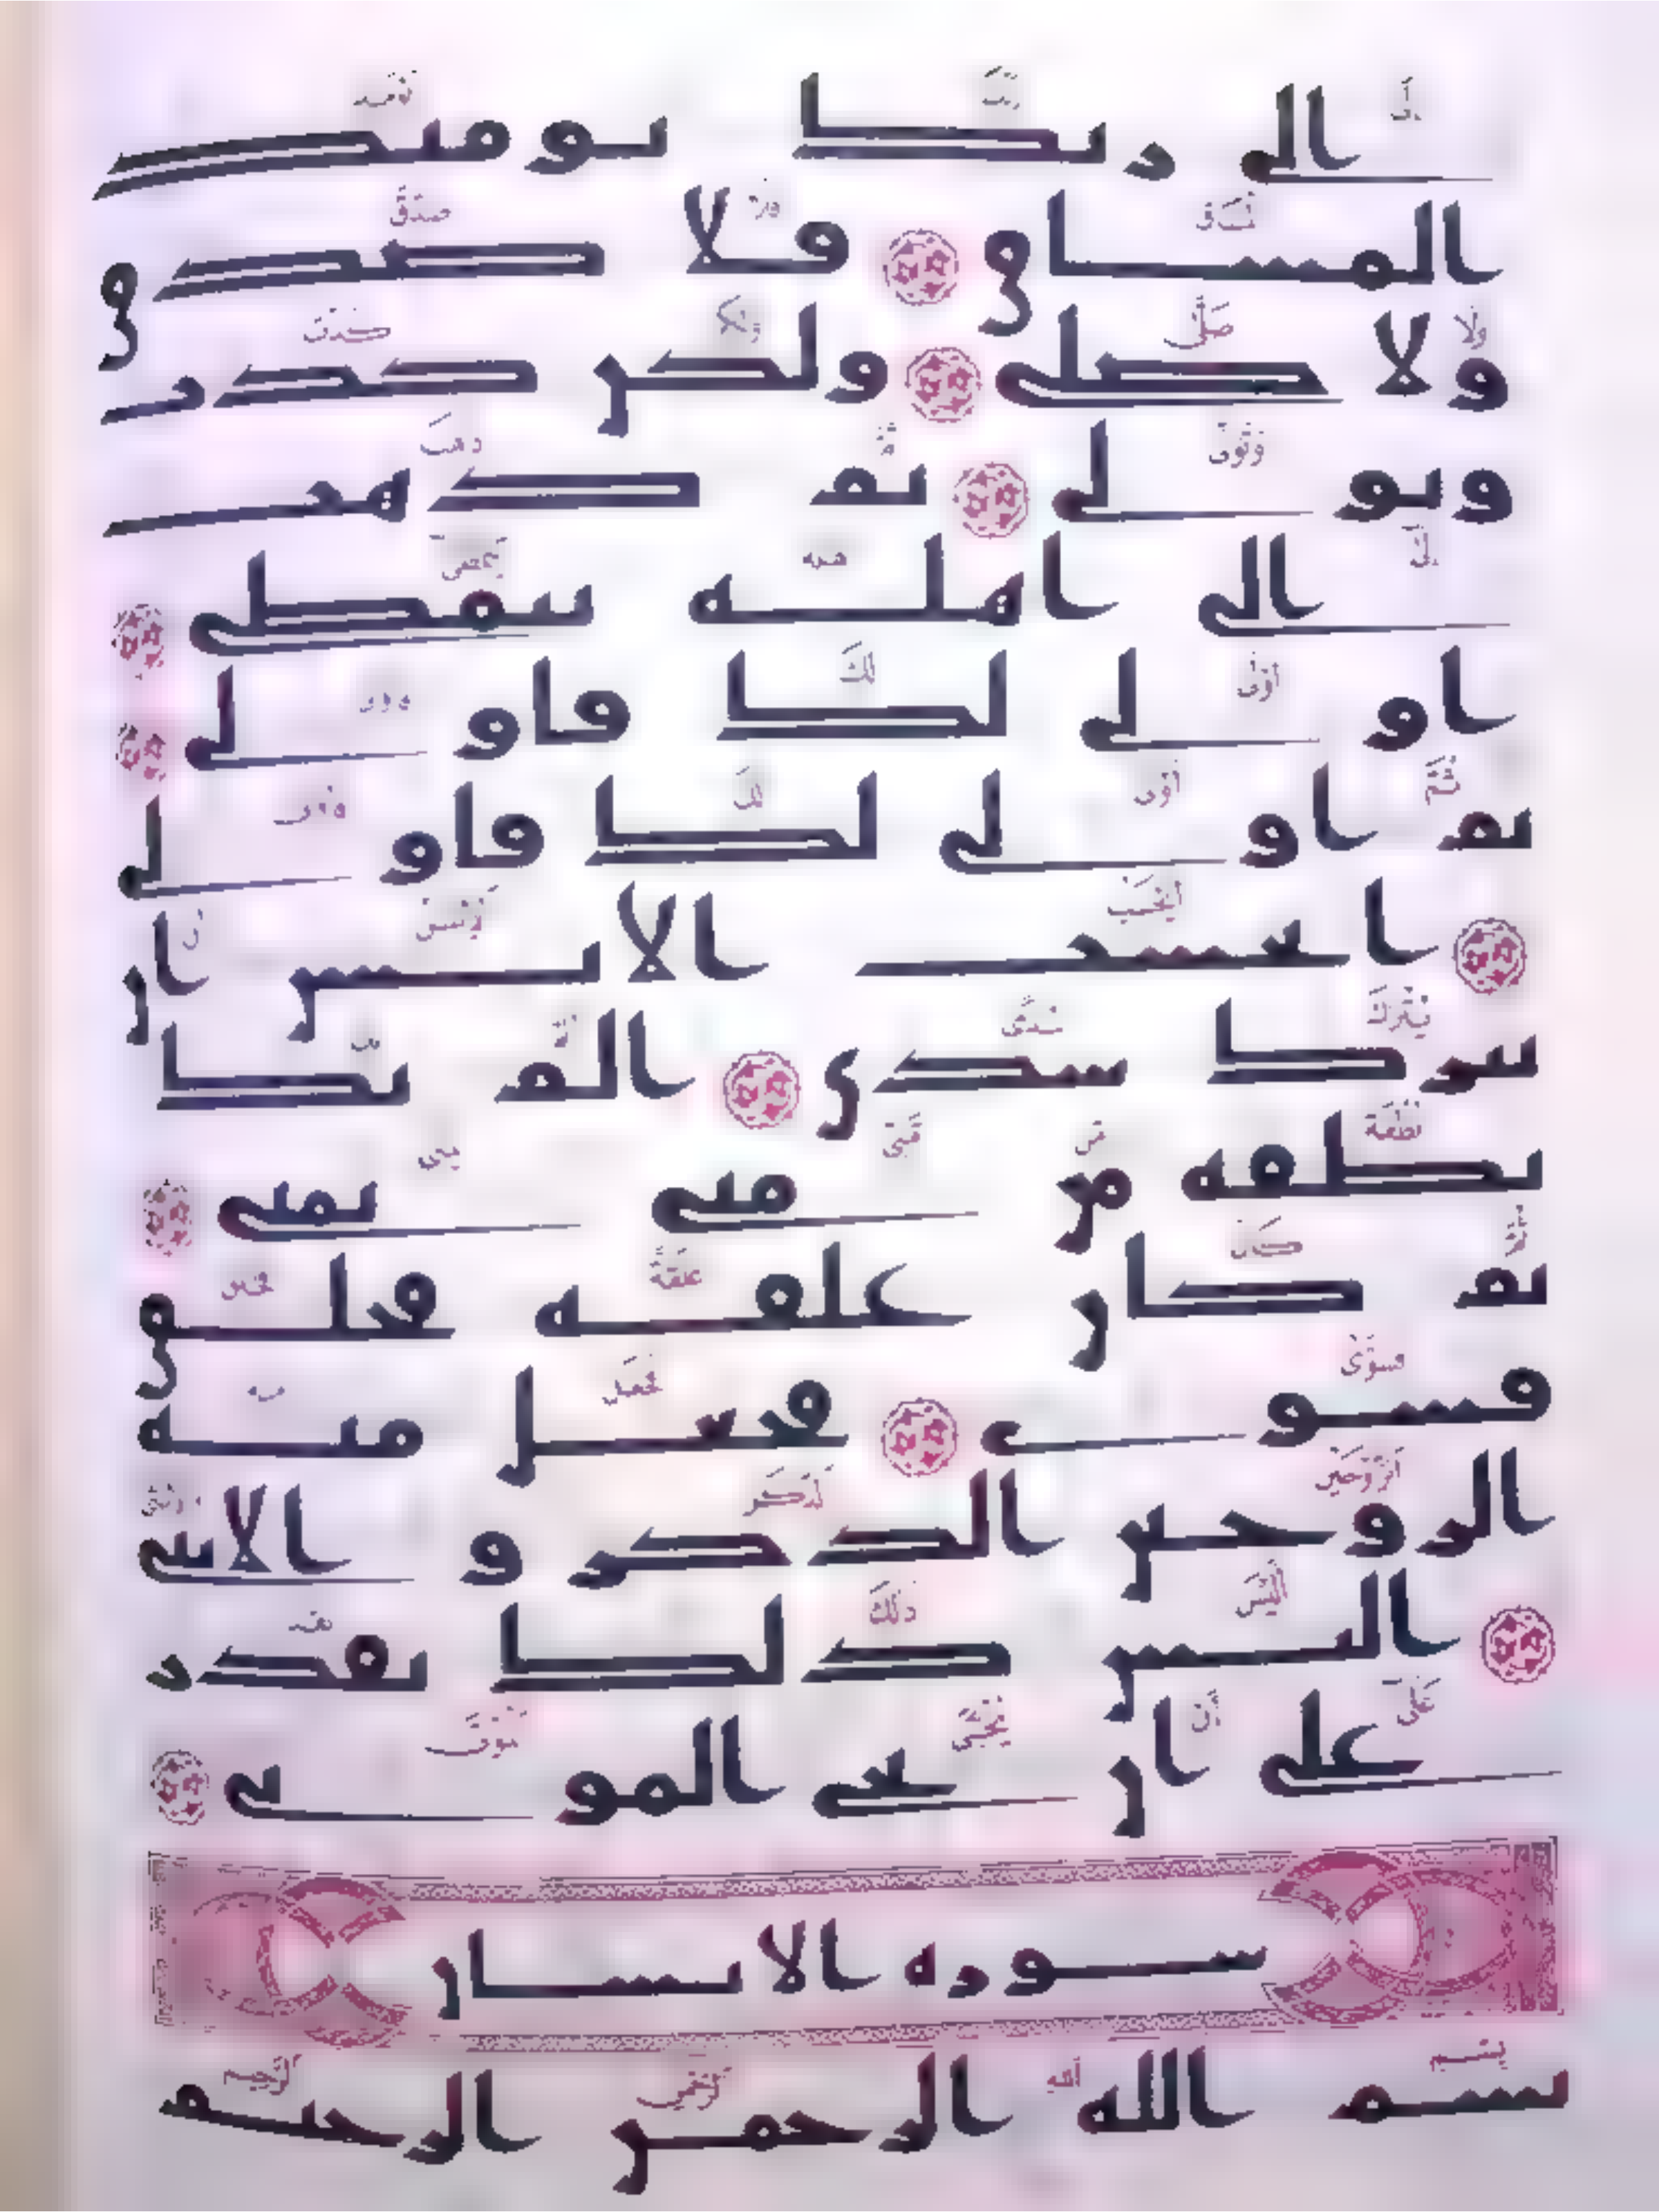 الى ربك يومئذ
المساق فلا صدق
ولا صلى ولكن كذب
وتولى ثم ذهب
الى اهله يتمطى
اولى لك فاولى
ثم اولى لك فاولى
ايحسب الانسن ان
يترك سدى الم يك
نطفة من منى يمنى
ثم كان علقة فخلق
فسوى فجعل منه
الزوجين الذكر والانثى
اليس ذلك بقدر
على ان يحى الموتى
سورة الانسان
بسم الله الرحمن الرحيم